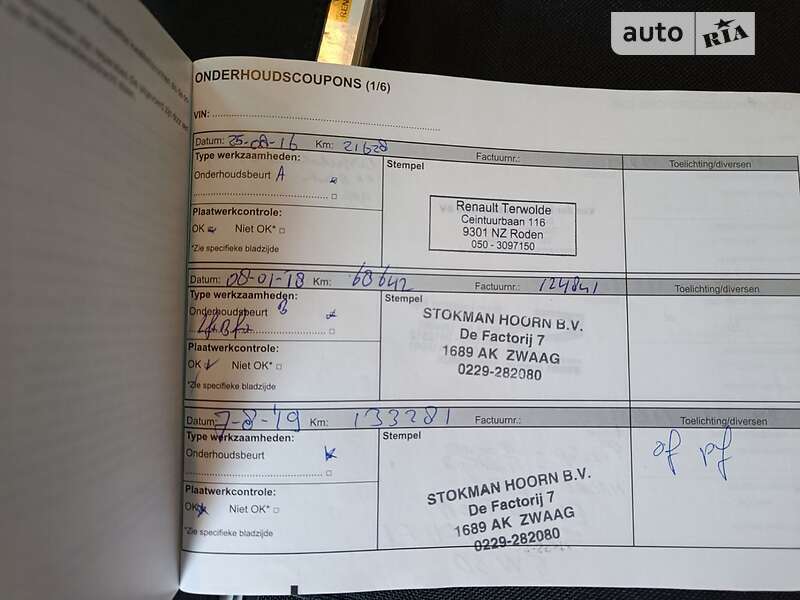 auto RIA
REN
ONDERHOUDSCOUPONS (1/6)
VIN:
Datum: 25-08-16 Km: 21628 Factuurnr.: Toelichting/diversen
Type werkzaamheden:
Stempel
Onderhoudsbeurt A
Plaatwerkcontrole:
OK Niet OK*
*Zie specifieke bladzijde
Renault Terwolde
Ceintuurbaan 116
9301 NZ Roden
050 - 3097150
Datum: 08-01-18 Km: 68642 Factuurnr.: 124841 Toelichting/diversen
Type werkzaamheden:
Stempel
Onderhoudsbeurt B
Plaatwerkcontrole:
OK Niet OK*
*Zie specifieke bladzijde
STOKMAN HOORN B.V.
De Factorij 7
1689 AK ZWAAG
0229-282080
Datum: 7-8-19 Km: 133281 Factuurnr.: Toelichting/diversen
Type werkzaamheden:
Stempel
Onderhoudsbeurt
Plaatwerkcontrole:
OK Niet OK*
*Zie specifieke bladzijde
STOKMAN HOORN B.V.
De Factorij 7
1689 AK ZWAAG
0229-282080
of pf